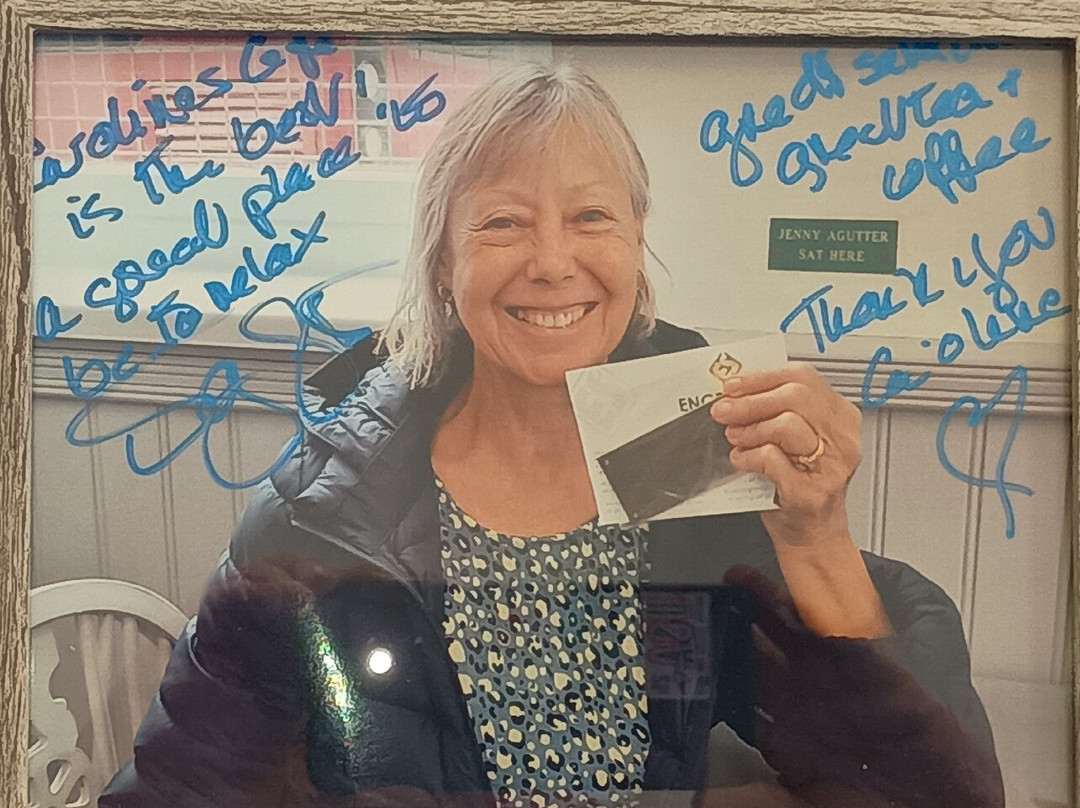 Carolines Cafe
is the best! its
a good place
to relax
great
great tea +
coffee
JENNY AGUTTER
SAT HERE
Thank you
Caroline
ENG